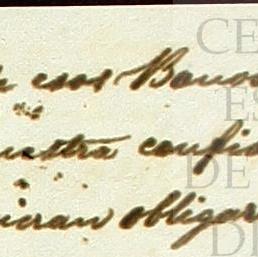 esos Bonos
uestra confia
ieran obligar
CE
ES
DE
DE